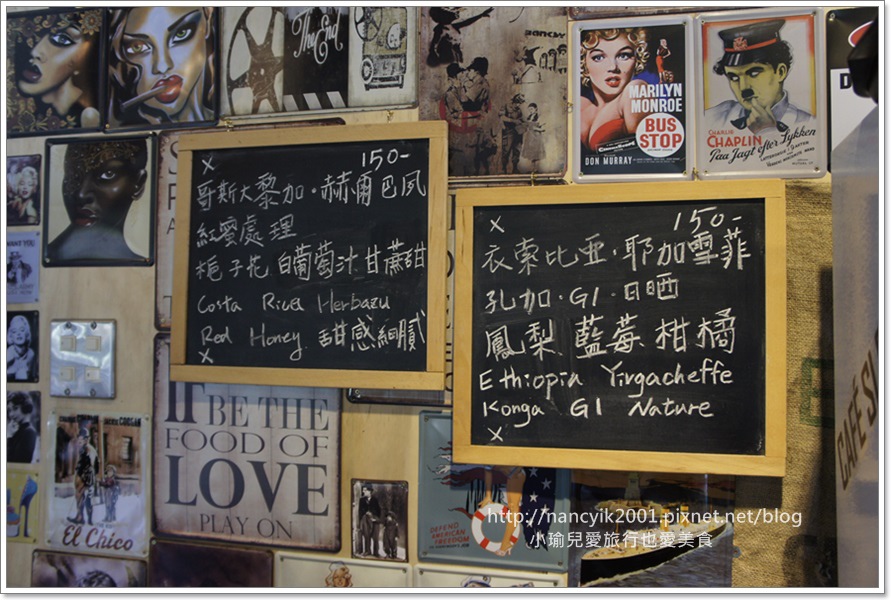 The End
BANKSY
MARILYN
MONROE
BUS
STOP
DON MURRAY
CHARLIE
CHAPLIN
Paa Jagt efter Lykken
× 150-
哥斯大黎加·赫爾巴夙
紅蜜處理
梔子花 白葡萄汁 甘蔗甜
Costa Rica Herbazu
Red Honey. 甜感細膩
×
× 150-
衣索比亞·耶加雪菲
孔加·G1·日晒
鳳梨 藍莓 柑橘
Ethiopia Yirgacheffe
Konga G1 Nature
×
IF
BE THE
FOOD OF
LOVE
PLAY ON
CAFÉ
El Chico
DEFEND
AMERICAN
FREEDOM
http://nancyik2001.pixnet.net/blog
小瑜兒愛旅行也愛美食